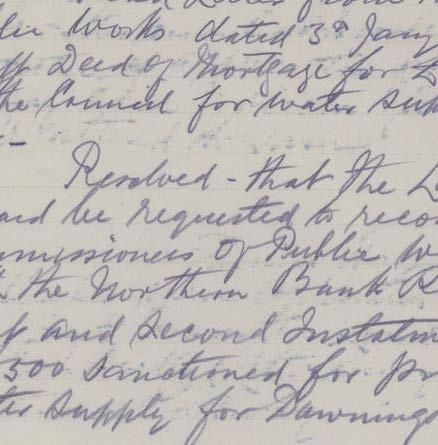 lic Works dated 3rd Jany
Deed of Mortgage for
the Council for water sup
Resolved - that the L
ard be requested to reco
mmissioners of Public W
the Northern Bank
and Second Instalm
500 Sanctioned for pr
ter Supply for Dawnings